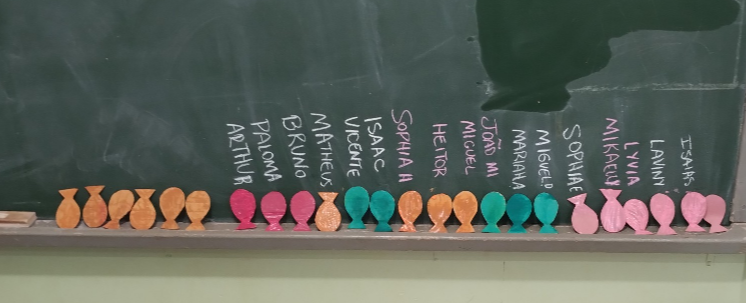 ARTHUR
PALOMA
BRUNO
MATHEUS
VICENTE
ISAAC
SOPHIA H
HEITOR
MIGUEL
JOÃO MI
MARIANA
MIGUEL P
SOPHIA E
MIKAELLY
LYVIA
LAVINY
ISAIAS